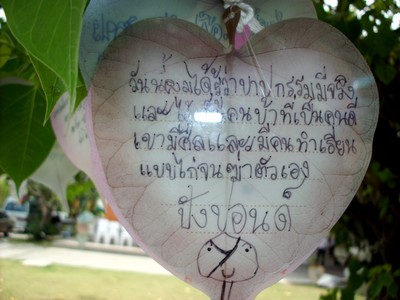 วันนี้ผมได้รู้ว่าบาปกรรมมีจริง
และได้เห็นคนบ้าที่เป็นคนดี
เขามีศีลและมีคนทำเรียน
แบบไก่จนฆ่าตัวเอง
ปังปอนด์